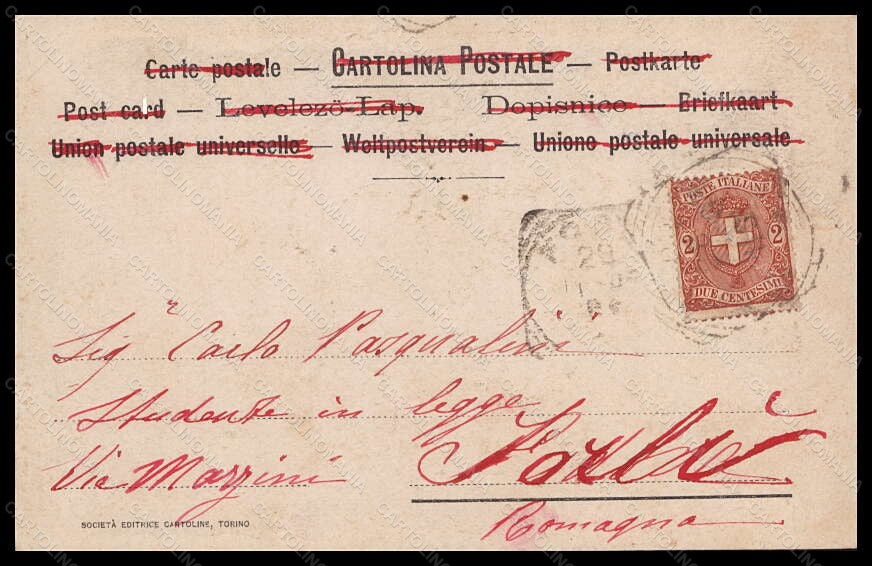 Carte postale — CARTOLINA POSTALE — Postkarte
Post card — Levelező-Lap. Dopisnice — Briefkaart
Union postale universelle — Weltpostverein — Unione postale universale
POSTE ITALIANE
2 2
DUE CENTESIMI
Sig Carlo Pasqualini
Studente in legge
Via Mazzini Forlì
Romagna
SOCIETÀ EDITRICE CARTOLINE, TORINO
CARTOLINOMANIA